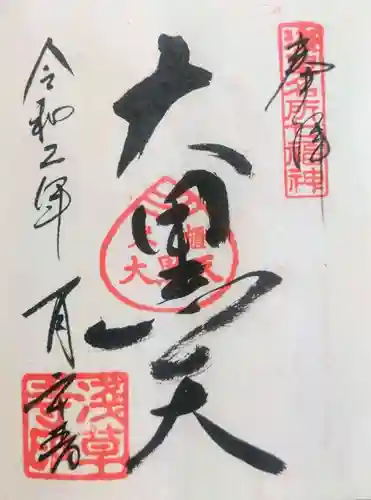 奉拝
浅草名所七福神
大黒天
米櫃
大黒天
令和二年
月吉日
浅草